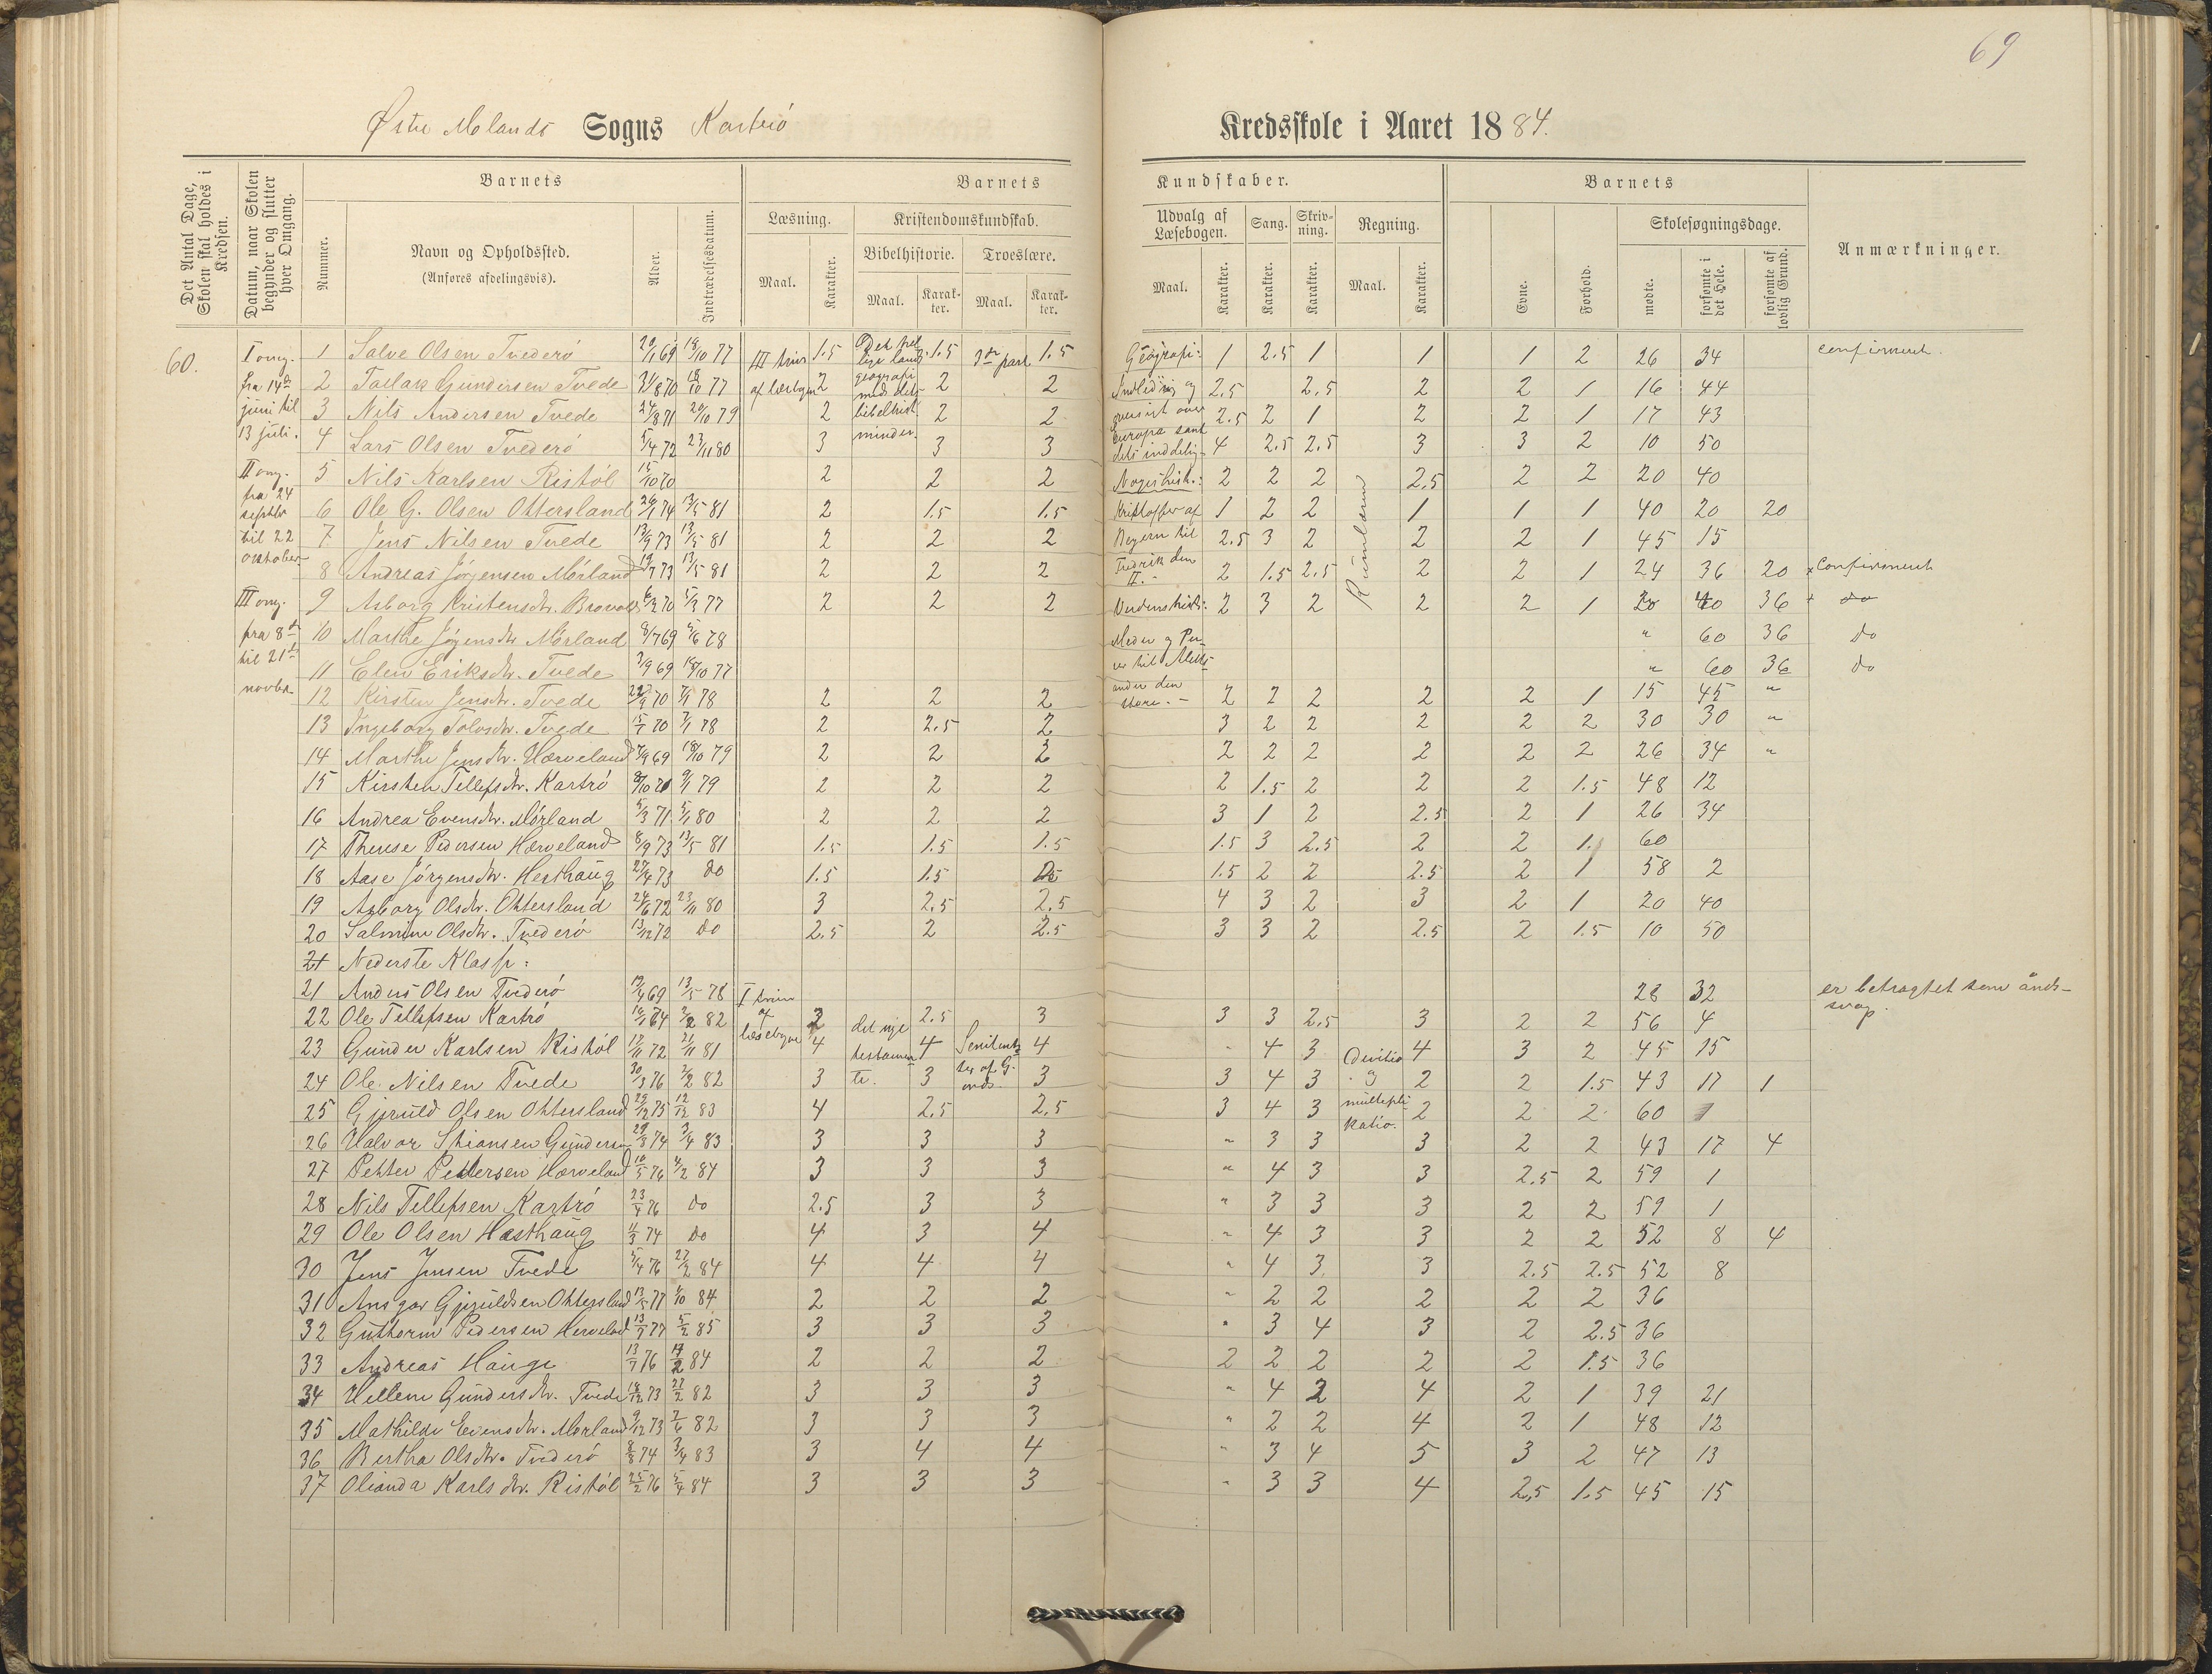 69
Østre Molands Sogns Kartrø Kredsskole i Aaret 1884.
Det Antal Dage, Skolen skal holdes i Kredsen.
Datum, naar Skolen begynder og slutter hver Omgang.
Barnets
Nummer.
Navn og Opholdssted.
(Anføres afdelingsvis).
Alder.
Indtrædelsesdatum.
Barnets Kundskaber.
Læsning.
Maal.
Karakter.
Kristendomskundskab.
Bibelhistorie.
Maal.
Karakter.
Troeslære.
Maal.
Karakter.
Udvalg af Læsebogen.
Maal.
Karakter.
Sang.
Karakter.
Skrivning.
Karakter.
Regning.
Maal.
Karakter.
Barnets
Evne.
Forhold.
Skolesøgningsdage.
mødte.
forsømte i det Hele.
forsømte af lovlig Grund.
Anmærkninger.
60.
I omg.
fra 14de
juni til
13 juli.
II omg.
fra 24
septbr
til 22
oktober
III omg.
fra 8de
til 21de
novbr
III trin
af læsbogen
Det hel
lige lands
geografi
med dets
bibelhist.
minder.
2den part
Geografi:
Indledning og
oversigt over
Europa samt
dets inddeling
Kristoffer af
Beyern til
Fredrik den
II. -
Verdenshist:
Meder og Per
ser til Aleks
ander den
store. -
1 Salve Olsen Tvederø 20/1 69 18/10 77 1.5 1.5 1.5 1 2.5 1 1 1 2 26 34 confirmert.
2 Tallak Gundersen Tvede 31/8 70 18/10 77 2 2 2 2.5 2.5 2 2 1 16 44
3 Nils Andersen Tvede 24/8 71 20/10 79 2 2 2 2.5 2 1 2 2 1 17 43
4 Lars Olsen Tvederø 5/4 72 23/11 80 3 3 3 4 2.5 2.5 3 3 2 10 50
5 Nils Karlsen Ristøl 15/10 70 2 2 2 2 2 2 2.5 2 2 20 40
6 Ole G. Olsen Ottersland 26/1 74 13/5 81 2 1.5 1.5 1 2 2 1 1 1 40 20 20
7 Jens Nilsen Tvede 13/9 73 13/5 81 2 2 2 2.5 3 2 2 2 1 45 15
8 Andreas Jørgensen Mørland 19/7 73 13/5 81 2 2 2 2 1.5 2.5 2 2 1 24 36 20 x confirmert
9 Asborg Kristensdtr. 70 77 2 2 2 2 3 2 2 2 1 20 40 36 + do
10 Marthe Jørgensdtr Mørland 8/7 69 5/6 78 " 60 36 do
11 Elen Eriksdtr. Tvede 3/9 69 18/10 77 " 60 36 do
12 Kirsten Jensdtr. Tvede 22/9 70 7/1 78 2 2 2 2 2 2 2 2 1 15 45 "
13 Ingeborg Tolvsdtr. Tvede 15/7 70 7/1 78 2 2.5 2 3 2 2 2 2 2 30 30 "
14 Marthe Jensdtr. Hærveland 7/9 69 18/10 79 2 2 2 2 2 2 2 2 2 26 34 "
15 Kirsten Tellefsdtr. Kartrø 8/10 70 9/1 79 2 2 2 2 1.5 2 2 2 1.5 48 12
16 Andrea Evensdtr. Mørland 5/3 71 5/1 80 2 2 2 3 1 2 2.5 2 1 26 34
17 Therese Pedersen Hærveland 8/9 73 13/5 81 1.5 1.5 1.5 1.5 3 2.5 2 2 1. 60
18 Aase Jørgensdtr. Hesthaug 27/4 73 do 1.5 1.5 1.5 2 2 2.5 2 1 58 2
19 Asborg Olsdtr. Ottersland 24/6 72 23/11 80 3 2.5 2.5 4 3 2 3 2 1 20 40
20 Salmine Olsdtr. Tvederø 13/12 72 do 2.5 2 2.5 3 3 2 2.5 2 1.5 10 50
21 Nederste Klasse:
21 Anders Olsen Tvederø 12/4 69 13/5 78 28 32 er betragtet som åndssvag.
I trin
af
læsebogen
det nye
testamen
te.
Divition
og
multipli
kation.
22 Ole Tellefsen Kartrø 82 3 2.5 3 3 3 2.5 3 2 2 56 4
23 Gunder Karlsen Ristøl 72 21/11 81 4 4 4 - 4 3 4 3 2 45 15
24 Ole Nilsen Tvede 30/3 76 2/2 82 3 3 3 3 4 3 2 2 1.5 43 17 1
25 Gjeruld Olsen Ottersland 29/12 75 12/12 83 4 2.5 2.5 3 4 3 2 2 2 60
26 Halvor Stiansen Gundersen 29/8 74 3/4 83 3 3 3 " 3 3 3 2 2 43 17 4
27 Petter Pettersen Hærveland 10/5 76 4/2 84 3 3 3 " 4 3 3 2.5 2 59 1
28 Nils Tellefsen Kartrø 23/4 76 do 2.5 3 3 " 3 3 3 2 2 59 1
29 Ole Olsen Hasthaug 11/3 74 do 4 3 4 " 4 3 3 2 2 52 8 4
30 Jens Jensen Tvede 5/4 76 27/2 84 4 4 4 " 4 3 3 2.5 2.5 52 8
31 Ansgar Gjeruldsen Ottersland 13/5 77 1/10 84 2 2 2 " 2 2 2 2 2 36
32 Guttorm Pedersen Herveland 13/7 77 5/2 85 3 3 3 " 3 4 3 2 2.5 36
33 Andreas Hauge 13/7 76 84 2 2 2 2 2 2 2 2 1.5 36
34 Hellene Gundersdtr. Tvede 18/12 73 27/2 82 3 3 3 " 4 2 4 2 1 39 21
35 Mathilde Evensdtr. Mørland 9/12 73 7/6 82 3 3 3 " 2 2 4 2 1 48 12
36 Bertha Olsdtr. Tvederø 8/8 74 3/4 83 3 4 4 " 3 4 5 3 2 47 13
37 Olianda Karlsdtr. Ristøl 25/2 76 5/4 84 3 3 3 " 3 3 4 2,5 1.5 45 15